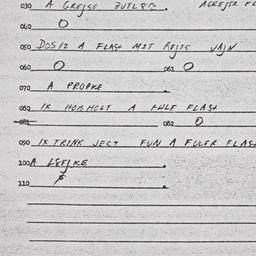 030 A GREJSE ZUTLETS. AGREJSE FL
040 0
050 DOSIZ A FLASH MIT REJTE VAJN
060 0 061 0
070 A PROPKE
080 IX HOBHOLT A FULE FLASH
081 082 0
090 IX TRINK JECT FUN A FULER FLASH
100 A LEFJKE
110